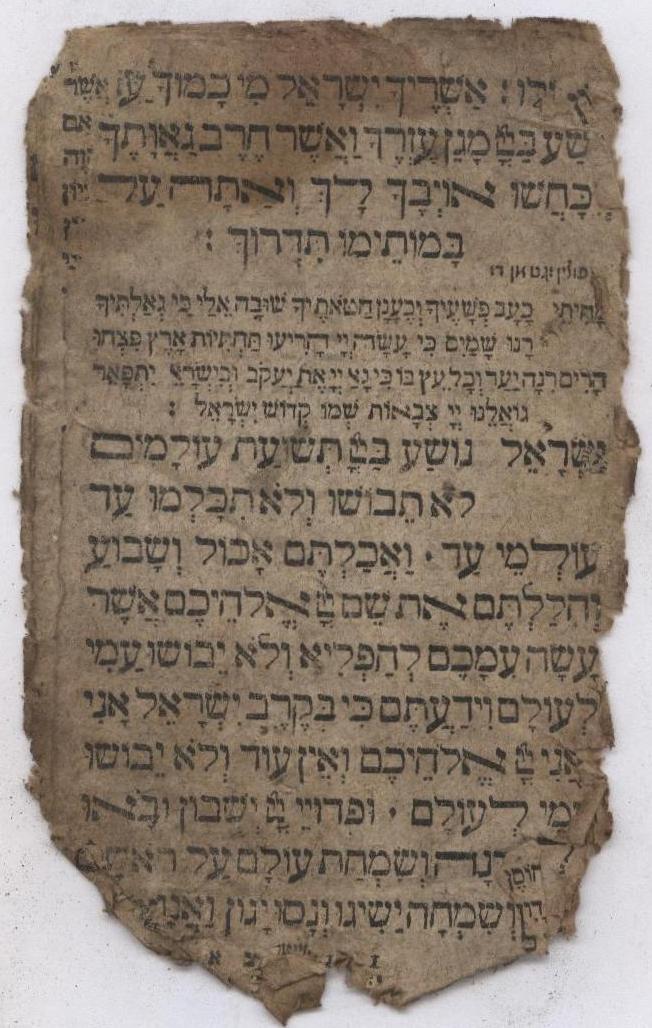 אשריך ישראל מי כמוך עם אשר
שע ביי מגן עזרך ואשר חרב גאותך אם
כחשו אויבך לך ואתה על
במותימו תדרוך :
מחיתי כעב פשעיך וכענן חטאתיך שובה אלי כי גאלתיך
רנו שמים כי עשה יי הריעו תחתיות ארץ פצחו
הרים רנה יער וכל עץ בו כי גאל יי את יעקב ובישראל יתפאר
גואלנו יי צבאות שמו קדוש ישראל :
ישראל נושע ביי תשועת עולמים
לא תבושו ולא תכלמו עד
עולמי עד · ואכלתם אכול ושבוע
והללתם את שם יי אלהיכם אשר
עשה עמכם להפליא ולא יבושו עמי
לעולם וידעתם כי בקרב ישראל אני
אני יי אלהיכם ואין עוד ולא יבושו
עמי לעולם · ופדויי יי ישבון ובאו
רנה ושמחת עולם על ראשם
ושמחה ישיגו ונסו יגון ואנחה